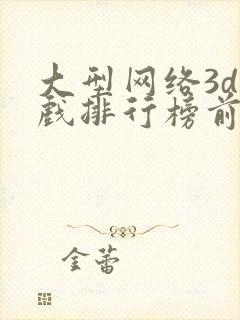 大型网络3d
戏排行榜前
金蕾